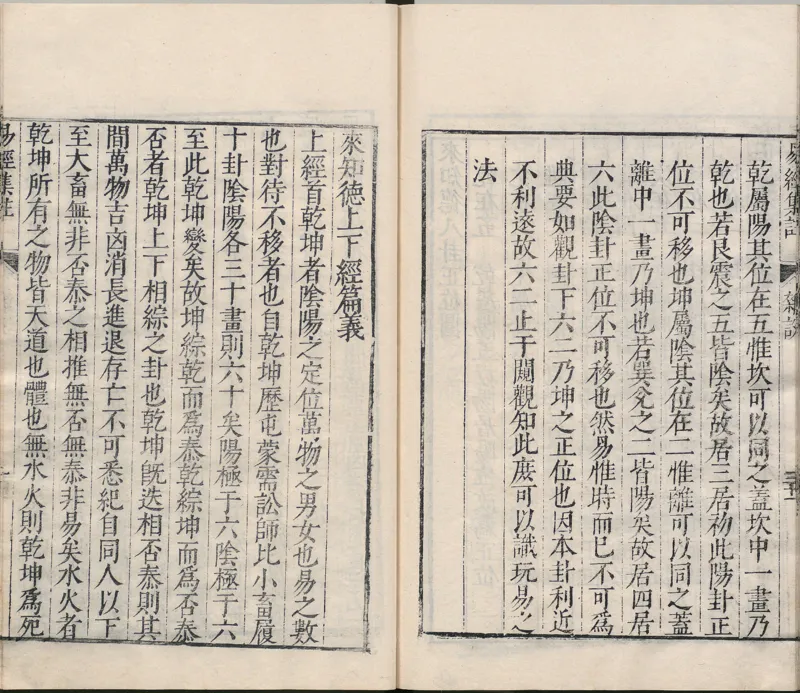 乾屬陽其位在五惟坎可以同之蓋坎中一畫乃
乾也若艮震之五皆陰矣故居三居初此陽卦正
位不可移也坤屬陰其位在二惟離可以同之蓋
離中一畫乃坤也若巽兌之二皆陽矣故居四居
六此陰卦正位不可移也然易惟時而已不可為
典要如觀卦下六二乃坤之正位也因本卦利近
不利遠故六二止于闚觀知此庶可以識玩易之
法
來知德上下經篇義
上經首乾坤者陰陽之定位萬物之男女也易之數
也對待不移者也自乾坤歷屯蒙需訟師比小畜履
十卦陰陽各三十畫則六十矣陽極于六陰極于六
至此乾坤變矣故坤綜乾而為泰乾綜坤而為否泰
否者乾坤上下相綜之卦也乾坤旣迭相否泰則其
間萬物吉凶消長進退存亡不可悉紀自同人以下
至大畜無非否泰之相推無否無泰非易矣水火者
乾坤所有之物皆天道也體也無水火則乾坤為死
易經集註